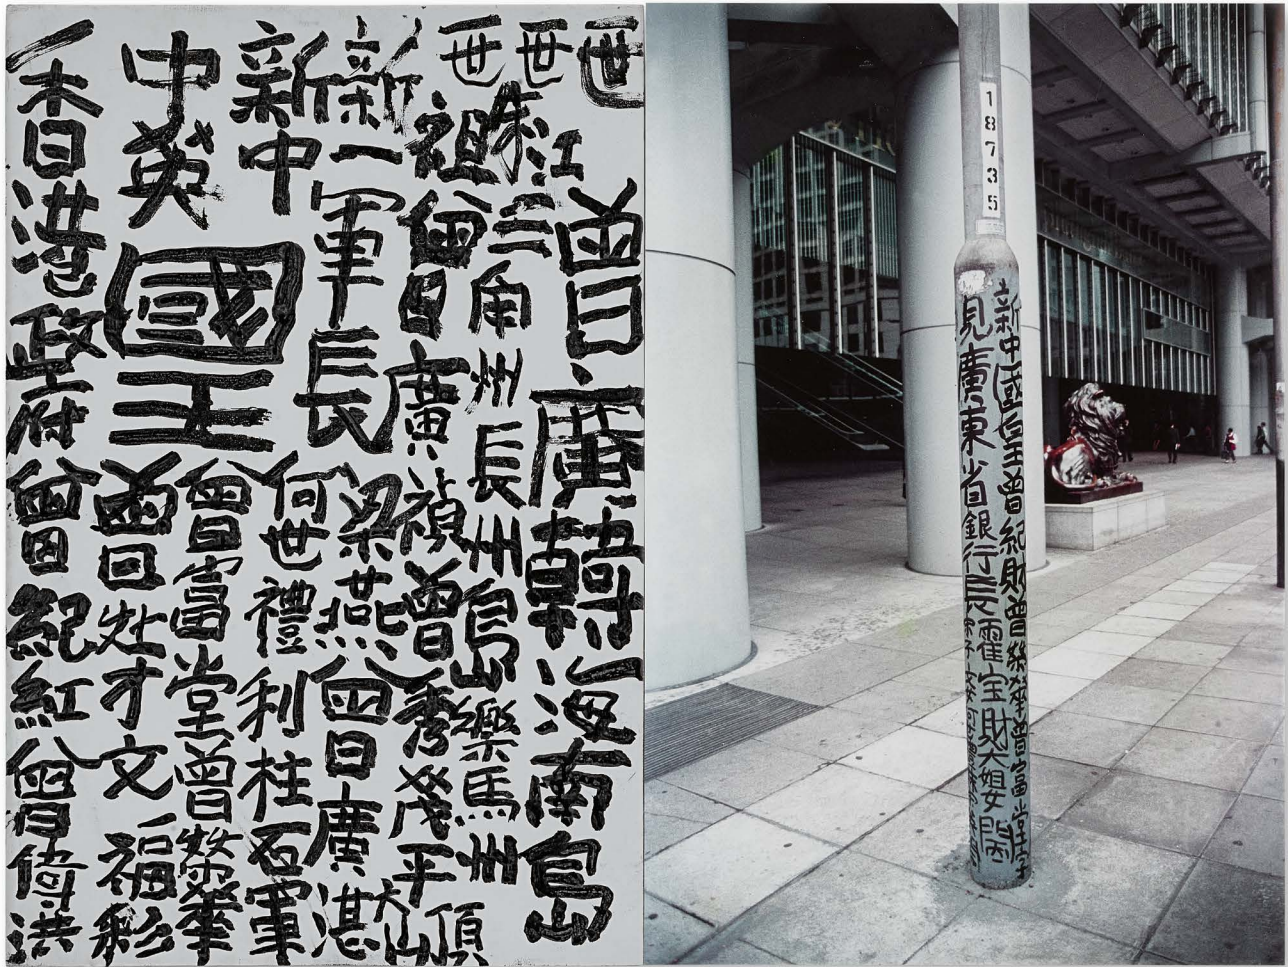 世曾廣韓海南島
世朱江三角州長州島樂馬州
世祖曾廣禎曾秀茂平
大山頂
新一軍長梁燕曾廣湛
新中
何世禮利柱石軍
中英國王
曾富堂曾榮華
曾灶才文福彩
香港政府曾紀紅曾倚洪
18735
新中國皇曾紀財曾榮華曾富堂字
見廣東省銀行長霍宝財大姐